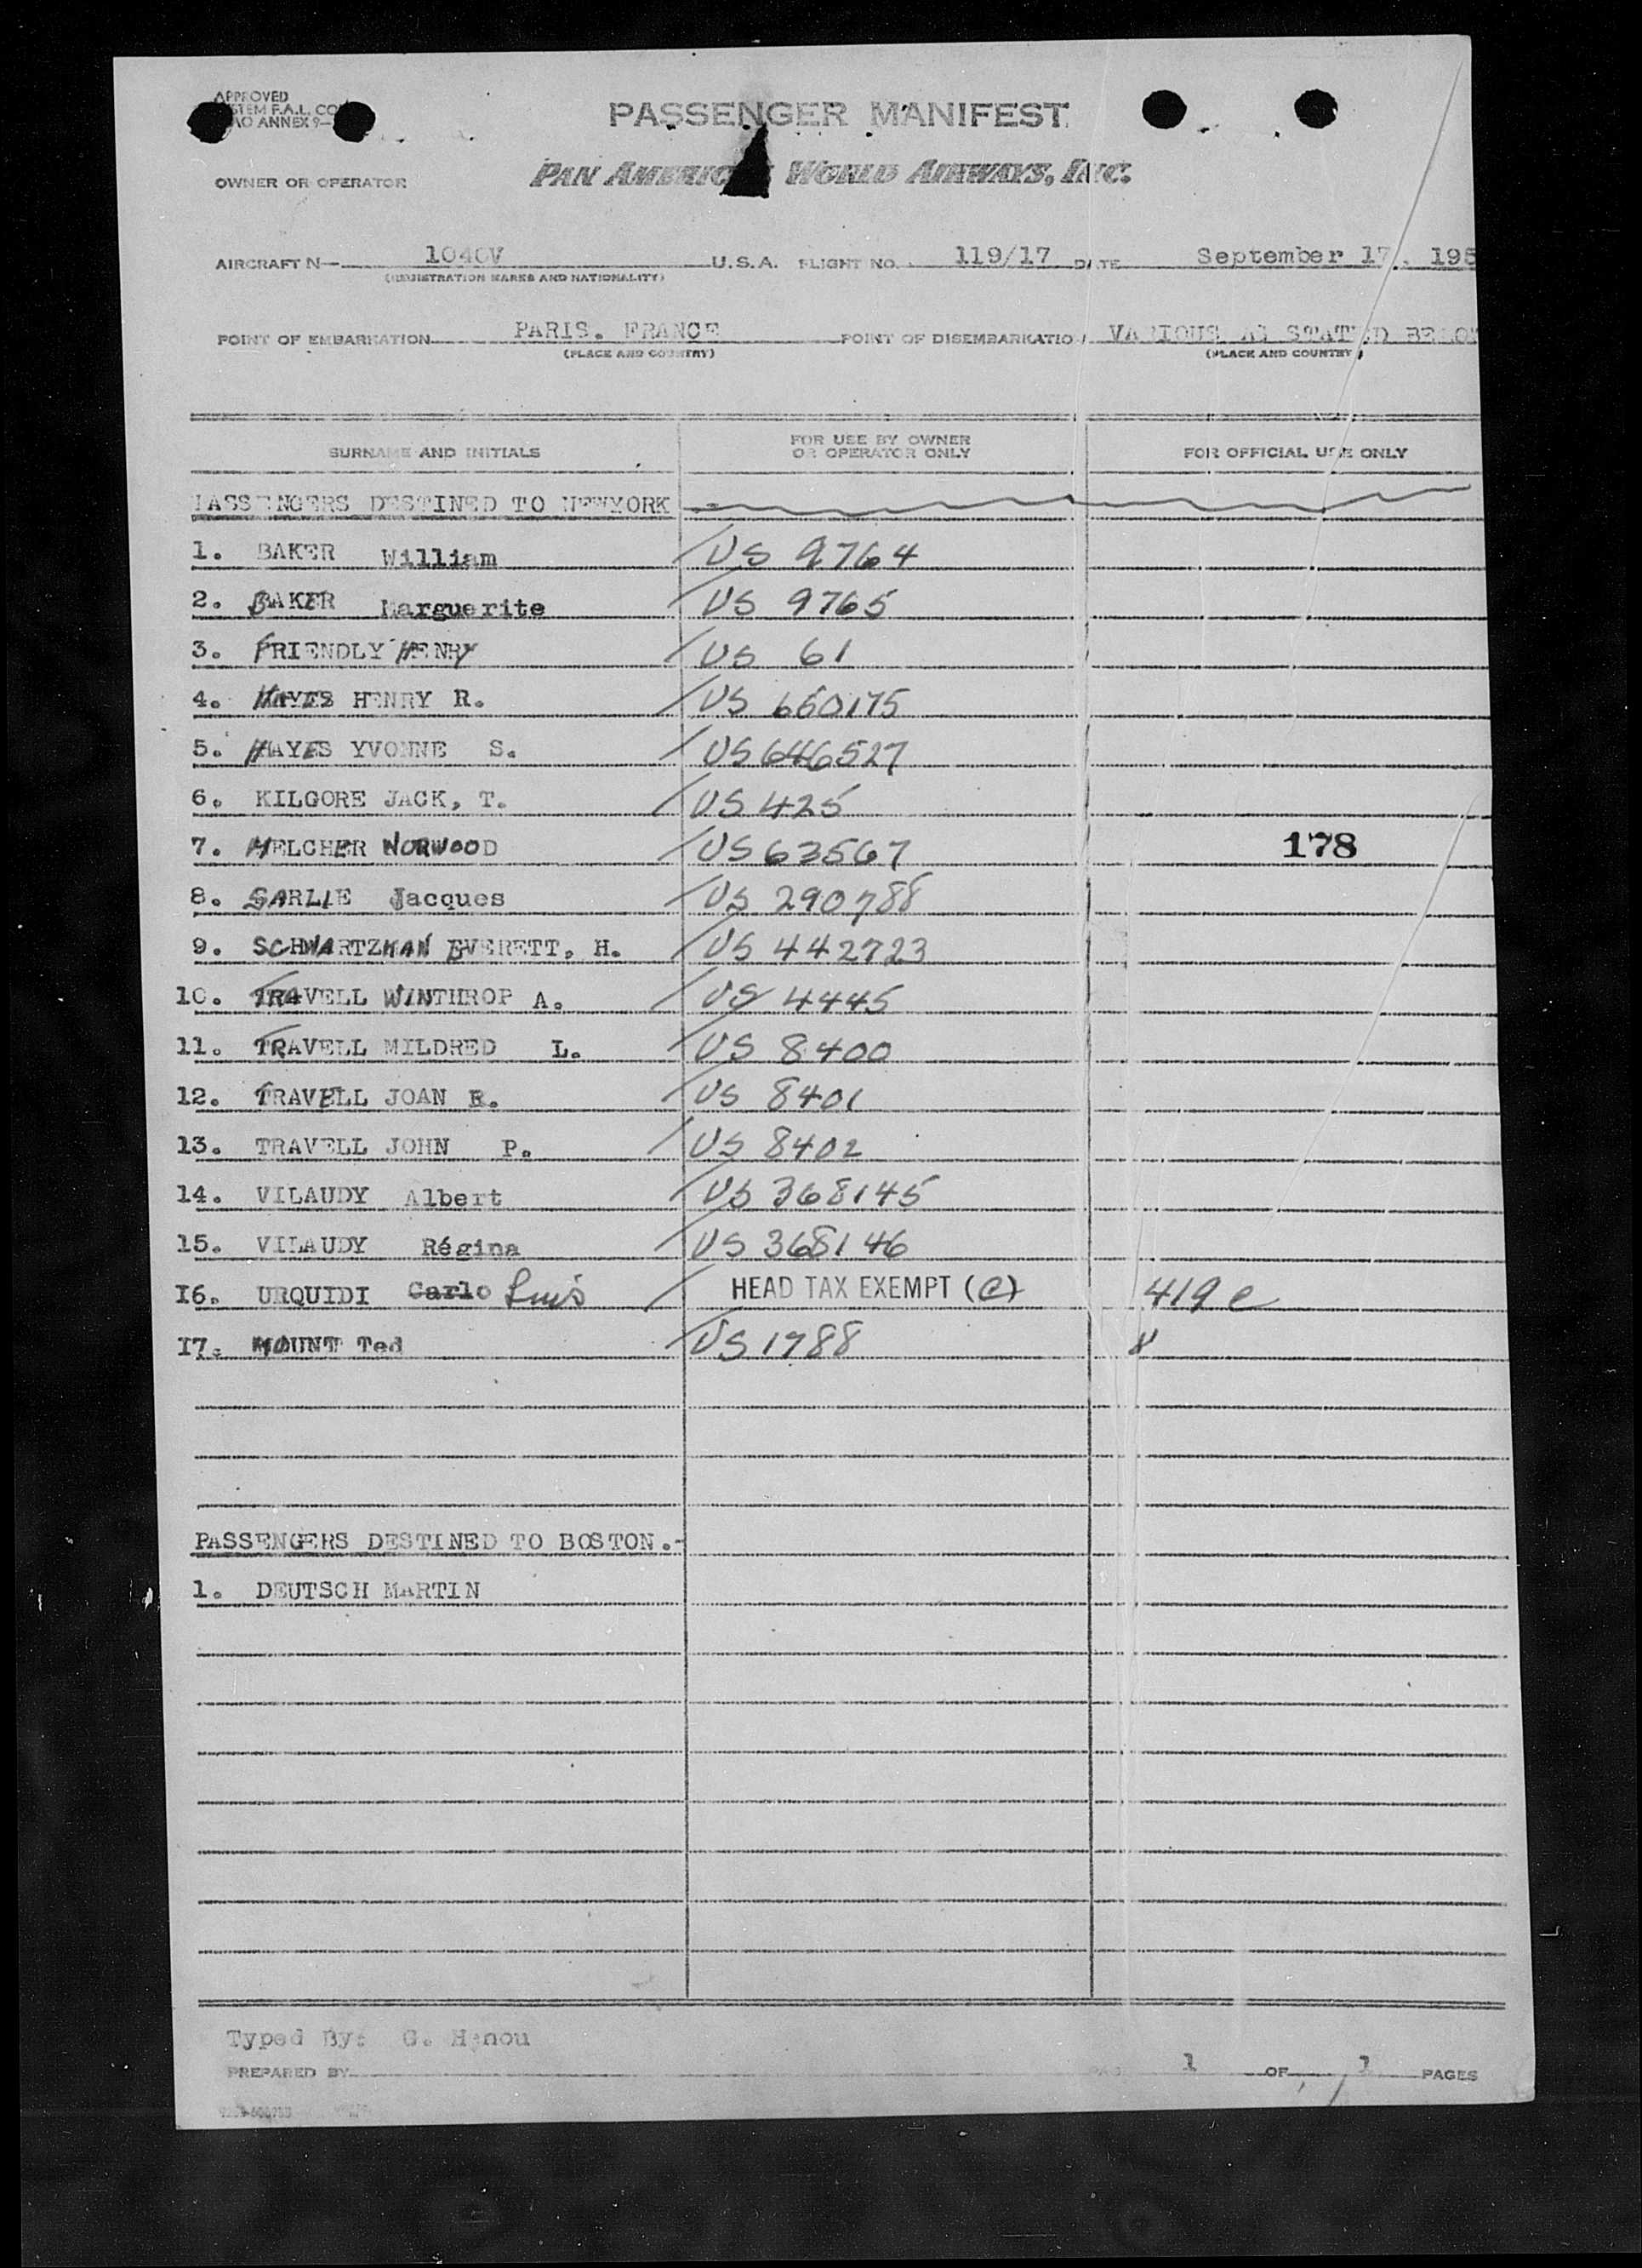 APPROVED
STEM F.A.L. CO
AO ANNEX 9-
PASSENGER MANIFEST
OWNER OR OPERATOR PAN AMERIC WORLD AIRWAYS, INC.
AIRCRAFT N- 1040V U.S.A. FLIGHT NO. 119/17 DATE September 17, 195
(REGISTRATION MARKS AND NATIONALITY)
POINT OF EMBARKATION PARIS. FRANCE POINT OF DISEMBARKATIO VARIOUS AS STATED BELOW
(PLACE AND COUNTRY) (PLACE AND COUNTRY)
SURNAME AND INITIALS FOR USE BY OWNER OR OPERATOR ONLY FOR OFFICIAL USE ONLY
PASSENGERS DESTINED TO NEWYORK
1. BAKER William US 9764
2. BAKER Marguerite US 9765
3. FRIENDLY HENRY US 61
4. HAYES HENRY R. US 660175
5. HAYES YVONNE S. US 646527
6. KILGORE JACK, T. US 425
7. MELCHER NORWOOD US 63567 178
8. SARLIE Jacques US 290788
9. SCHWARTZMAN EVERETT, H. US 442723
10. TRAVELL WINTHROP A. US 4445
11. TRAVELL MILDRED L. US 8400
12. TRAVELL JOAN E. US 8401
13. TRAVELL JOHN P. US 8402
14. VILAUDY Albert US 368145
15. VILAUDY Régina US 368146
16. URQUIDI Carlo Luis HEAD TAX EXEMPT (e) 419 e
17. MOUNT Ted US 1788
PASSENGERS DESTINED TO BOSTON.-
1. DEUTSCH MARTIN
Typed By: G. Hanou
PREPARED BY 1 OF 1 PAGES